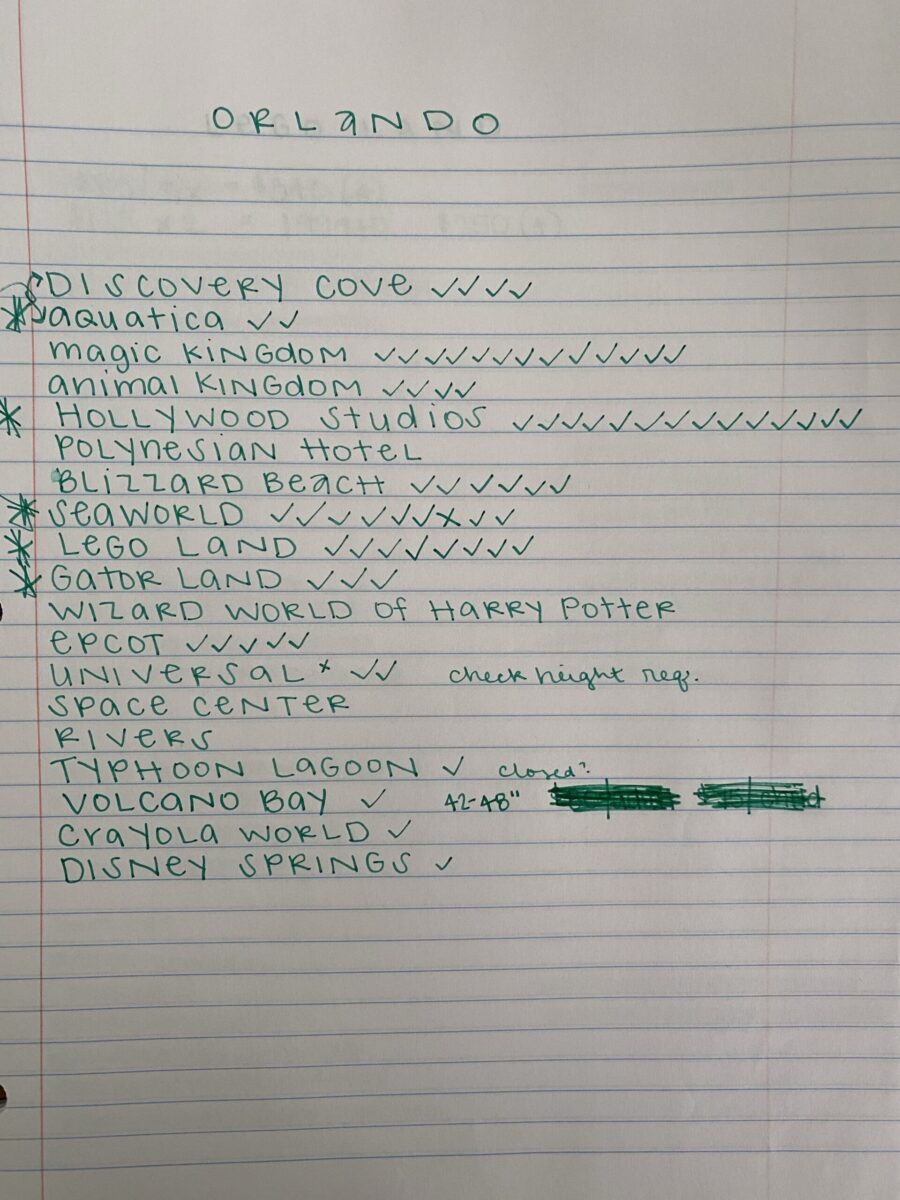 ORLaNDO
DISCOVeRY COVe ✓✓✓✓
* aQuatica ✓✓
magic KiNGdOM ✓✓✓✓✓✓✓✓✓✓✓✓✓
aNimal KINGdOM ✓✓✓✓
* HOLLYWOOD Studios ✓✓✓✓✓✓✓✓✓✓✓✓✓✓
POLYNeSiaN HOTeL
BLiZZaRD BeaCH ✓✓✓✓✓✓
* SeaWORLD ✓✓✓✓✓✓x✓✓
* LeGO LaND ✓✓✓✓✓✓✓✓
* GatoR LaND ✓✓✓
WIZaRD WORLD Of HaRRY POtteR
ePCOT ✓✓✓✓✓
UNIVeRSaL * ✓✓ check height req.
SPace CeNTeR
RIVeRS
TYPHOON LaGOON ✓ closed?
VOLCaNO Bay ✓ 42-48"
CRayOLa WORLD ✓
DISNey SPRINGS ✓